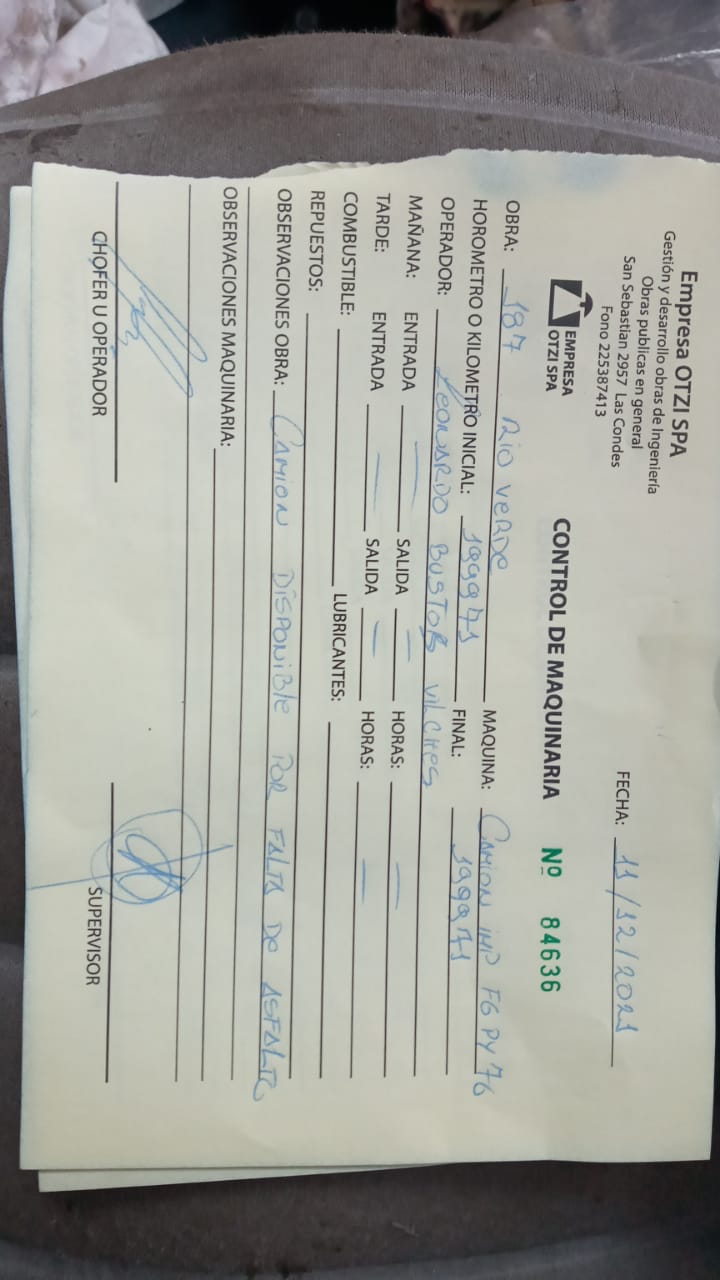 Empresa OTZI SPA
Gestión y desarrollo obras de Ingeniería
Obras publicas en general
San Sebastian 2957 Las Condes
Fono 225387413
EMPRESA
OTZI SPA
FECHA: 11/12/2021
CONTROL DE MAQUINARIA Nº 84636
OBRA: 187 RIO VERDE MAQUINA: CAMION IMP FGPY76
HOROMETRO O KILOMETRO INICIAL: 199971 FINAL: 199971
OPERADOR: LEONARDO BUSTOS VILCHES
MAÑANA: ENTRADA — SALIDA — HORAS: —
TARDE: ENTRADA — SALIDA — HORAS: —
COMBUSTIBLE: LUBRICANTES:
REPUESTOS:
OBSERVACIONES OBRA: CAMION DISPONIBLE POR FALTA DE ASFALTO
OBSERVACIONES MAQUINARIA:
CHOFER U OPERADOR SUPERVISOR